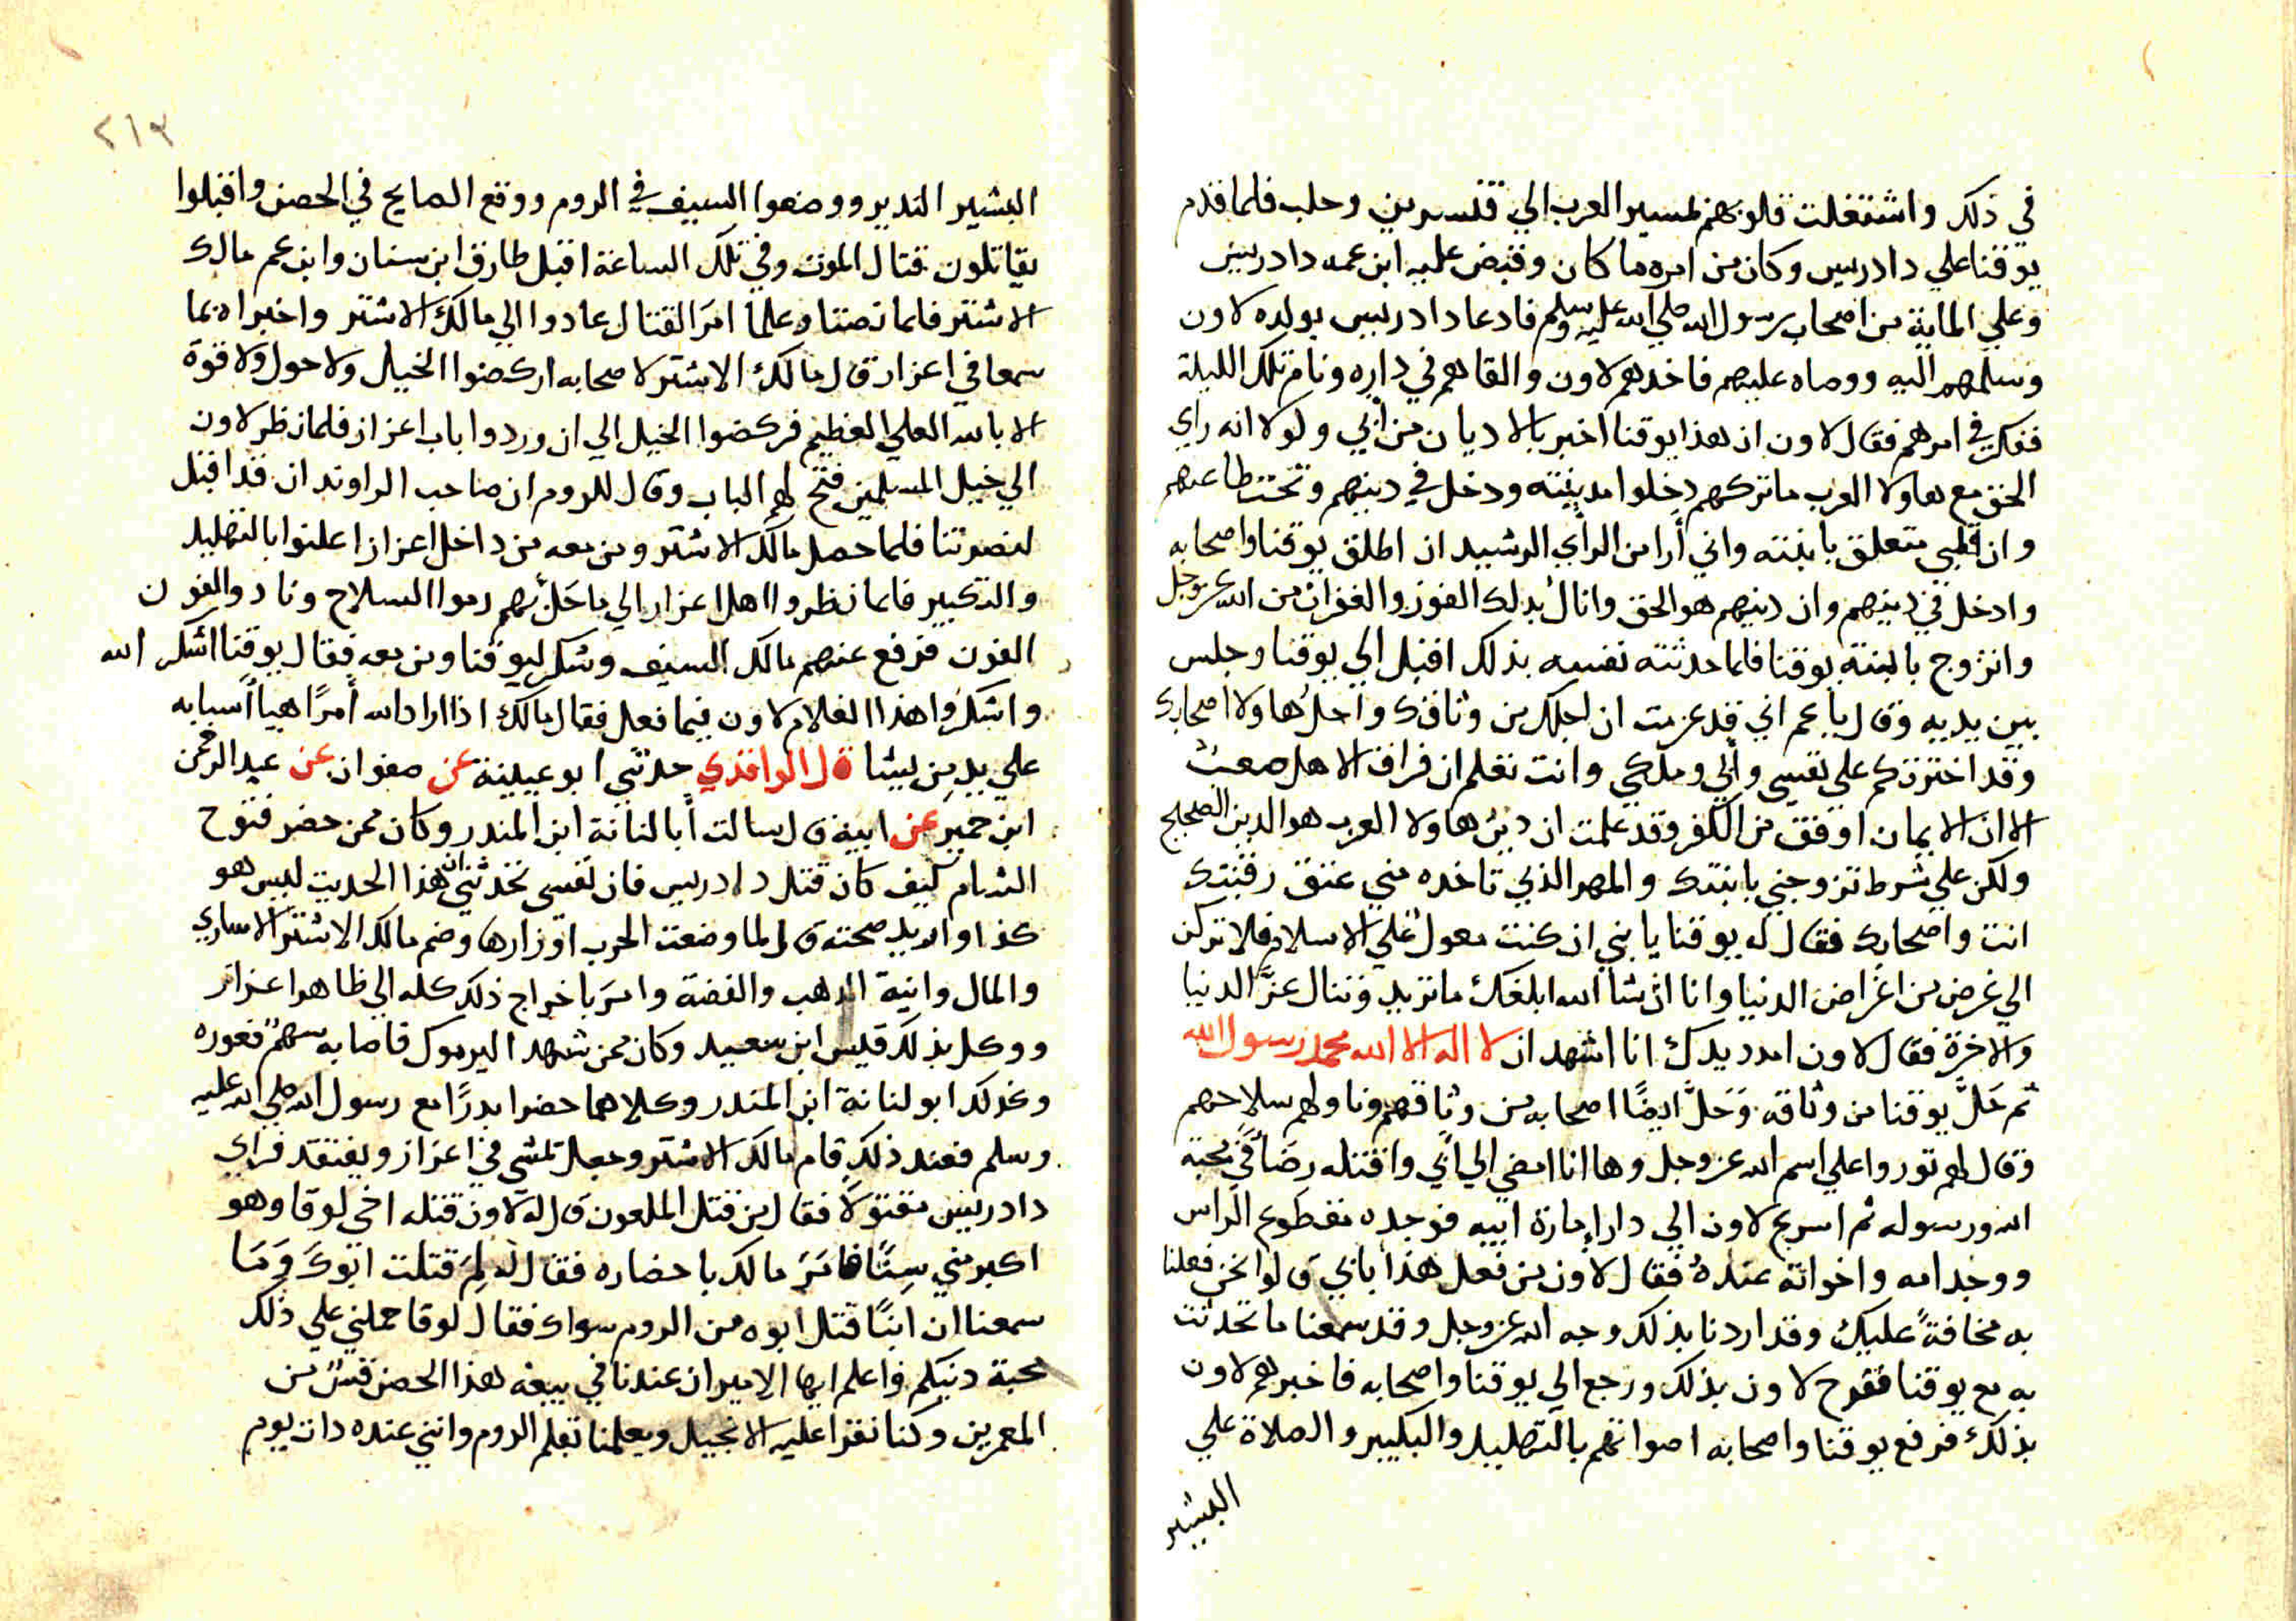 في ذلك واشتغلت قلوبهم لمسير العرب الي قنسرين وحلب فلما قدم
يوقنا علي دادريس وكان من امره ما كان وقبض عليه ابن عمه دادريس
وعلي الماية من اصحاب رسول الله صلي الله عليه وسلم فادعا دادريس بولده لاون
وسلمهم اليه ووصاه عليهم فاخدهم لاون والقاهم في داره ونام تلك الليلة
ففكر في امرهم فقال لاون ان هذا يوقنا اخبر بالاديان من أبي ولولا انه راي
الحق مع هاولا العرب ما تركهم دخلوا مدينته ودخل في دينهم وتحت طاعتهم
وان قلبي متعلق بابنته واني أرا من الرأي الرشيد ان اطلق يوقنا واصحابه
وادخل في دينهم وان دينهم هو الحق وانال بدلك الفوز والغفران من الله عز وجل
واتزوج بابنة يوقنا فلما حدثته نفسه بذلك اقبل الي يوقنا وجلس
بين يديه وقال يا عم اني قد عزمت ان احلك من وثاقك واحل هاولا اصحابك
وقد اخترتكم علي نفسي وأبي وملكي وانت تعلم ان فراق الاهل صعب
الا ان الايمان اوفق من الكفر وقد علمت ان دين هاولا العرب هو الدين الصحيح
ولكن علي شرط تزوجني بابنتك والمهر الذي تاخده مني عتق رقبتك
انت واصحابك فقال له يوقنا يا بني ان كنت معول علي الاسلام فلا تركن
الي غرض من اغراض الدنيا وانا ان شا الله ابلغك ما تريد وتنال عزّ الدنيا
والاخرة فقال لاون امدد يدك انا اشهد ان لا اله الا الله محمد رسول الله
ثم حَلّ يوقنا من وثاقه وَحَلّ ايضًا اصحابه من وثاقهم وناولهم سلاحهم
وقال لهم ثوروا علي اسم الله عز وجل وها انا امضي الي أبي واقتله رضًا في محبة
الله ورسوله ثم اسرع لاون الي دار إمارة ابيه فوجده مقطوع الراس
ووجد امه واخواته عنده فقال لاون من فعل هذا بابي قالوا نحن فعلنا
به مخافةً عليك وقد اردنا بذلك وجه الله عز وجل وقد سمعنا ما تحدثت
به مع يوقنا ففرح لاون بذلك ورجع الي يوقنا واصحابه فاخبرهم لاون
بذلك فرفع يوقنا واصحابه اصواتهم بالتهليل والتكبير والصلاة علي
البشير
٢١٣
البشير الندير ووضعوا السيف في الروم ووقع الصايح في الحصن واقبلوا
يقاتلون قتال الموت وفي تلك الساعة اقبل طارق ابن سنان وابن عم مالك
الاشتر فلما تصنتا وعلما امرَ القتال عادوا الي مالك الاشتر واخبراه بما
سمعا في اعزاز قال مالك الاشتر لاصحابه اركضوا الخيل ولا حول ولا قوة
الا بالله العلي العظيم فركضوا الخيل الي ان وردوا باب اعزاز فلما نظر لاون
الي خيل المسلمين فتح لهم الباب وقال للروم ان صاحب الراوندان قد اقبل
لنصرتنا فلما حصل مالك الاشتر ومن معه من داخل اعزاز اعلنوا بالتهليل
والتكبير فلما نظروا اهل اعزاز الي ما حَلّ بهم رموا السلاح ونادوا الغون
الغون فرفع عنهم مالك السيف وشكر ليوقنا ومن معه فقال يوقنا اشكر الله
واشكروا هذا الغلام لاون فيما فعل فقال مالك اذا اراد الله أمرًا هيا أسبابه
علي يد من يشا قال الواقدي حدثني ابو عبيينة عن صفوان عن عبد الرحمن
ابن حمير عن ابيه قال سالت أبا لنانة ابن المندر وكان ممن حضر فتوح
الشام كيف كان قتل دادريس فان نفسي تحدثني ان هذا الحديت ليس هو
كذا واريد صحته قال لما وضعت الحرب اوزارها وضم مالك الاشتر الاساري
والمال وانية الدهب والفضة وامرَ باخراج ذلك كله الي ظاهر اعزاز
ووكل بذلك قيس ابن سعيد وكان ممن شهد اليرموك فاصابه سهمٌ فعوره
وكذلك ابو لنانة ابن المندر وكلاهما حضرا بدرًا مع رسول الله صلي الله عليه
وسلم فعند ذلك قام مالك الاشتر وجعل تمشي في اعزاز ويفتقد فراي
دادريس مقتولًا فقال من قتل الملعون قال له لاون قتله اخي لوقا وهو
اكبر مني سنًا فامَرَ مالك باحضاره فقال له لِمَ قتلت ابوكَ وَمَا
سمعنا ان ابنًا قتل ابوه من الروم سواك فقال لوقا حملني علي ذلك
محبة دينكم واعلم ايها الامير ان عندنا في بيعه هذا الحصن قسٌ من
المعمرين وكنا نقرا عليه الانجيل ويعلمنا تعلم الروم وانني عنده دات يوم